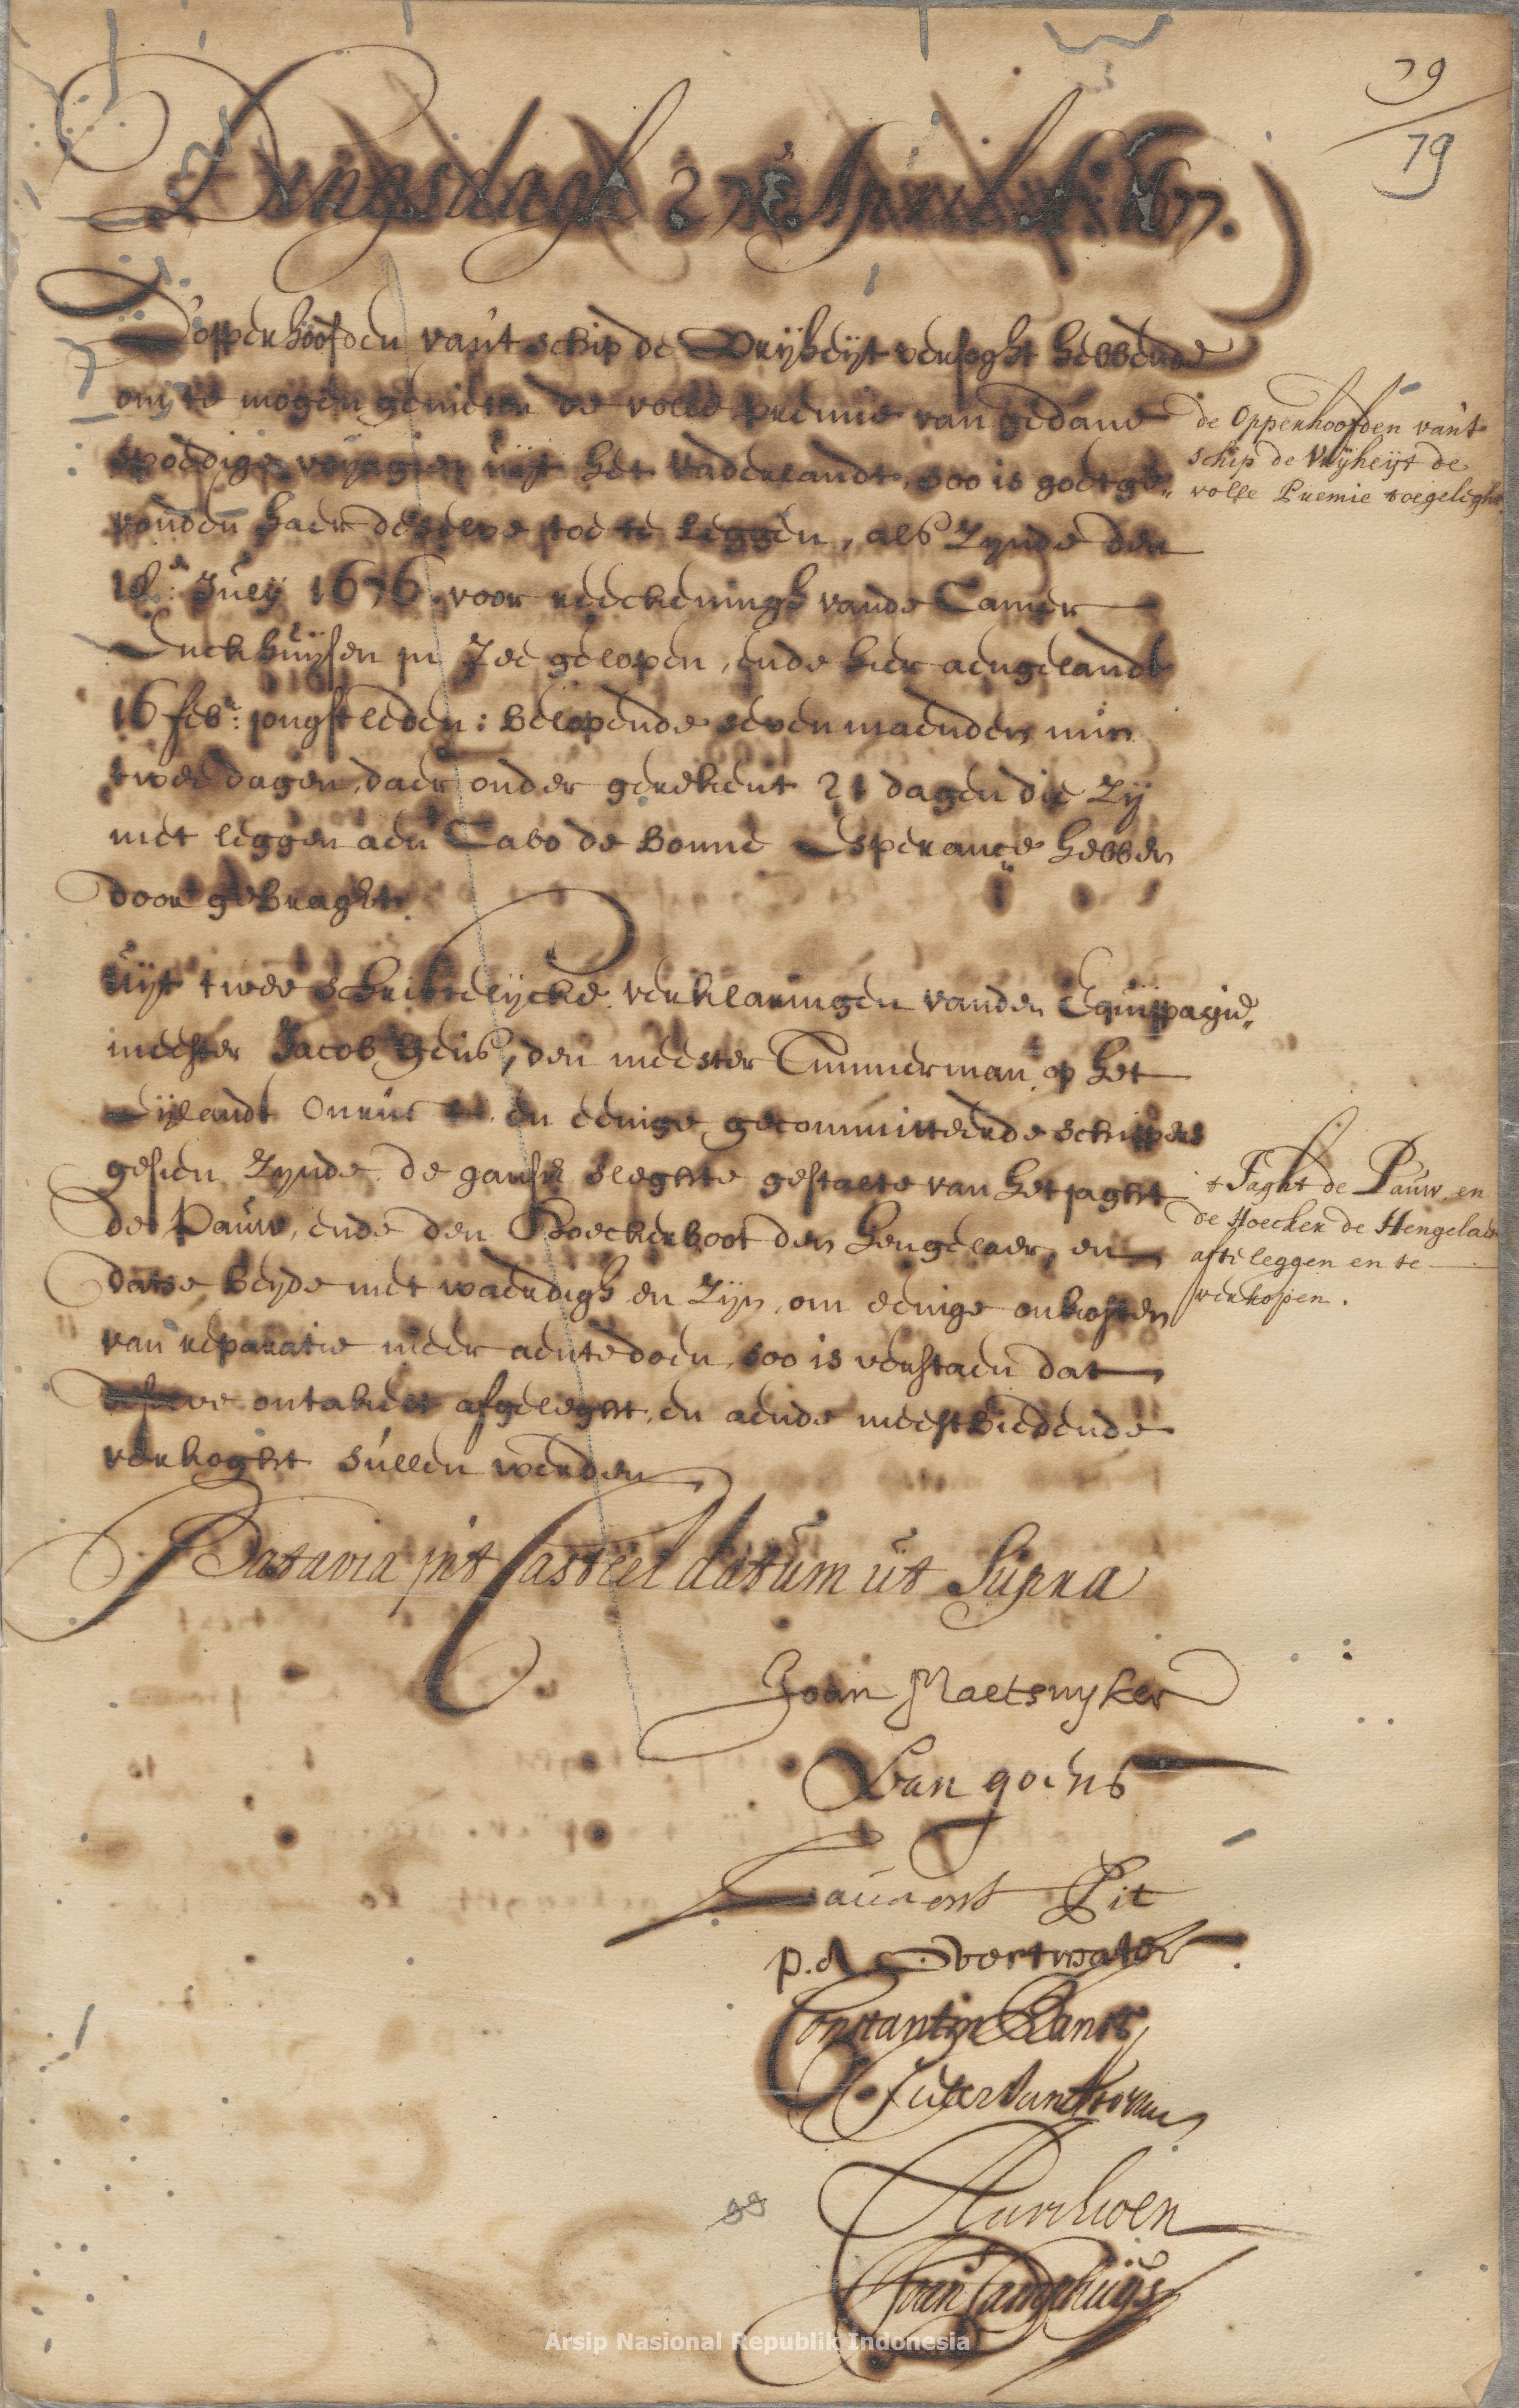 79
79
Dingsdagh 27e April a.o 1677.
D'opperhoofden van't schip de Vrijheijt versoght hebbende
om te mogen genieten de volle premie van gedane
spoedige voyagie uijt het vaderlandt, soo is goetge„
vonden haer deselve toe te leggen, als zijnde den
18.en Julij 1676 voor reeckeningh vande Camer
Enckhuijsen in zee gelopen, ende hier aengelandt
16 febr: jongstleden: belopende seven maenden min
twee dagen, daer onder gerekent 21 dagen die zij
met leggen aen Cabo de bonne Esperance hebben
door gebraght.
de Opperhoofden van't
schip de Vrijheijt de
volle Premie toegeleght
Uijt twee schriftelijcke verklaringen vanden Equipagie„
meester Jacob gens, den meester Timmerman op het
Eijlandt Onrust en eenige gecommitteerde schippers
gesien zijnde de gansch sleghte gestalte van het jaght
de Pauw, ende den Hoeckerboot den hengelaer, en
datse beijde niet waerdigh en zijn, om eenige onkosten
van reparatie meer aente doen, soo is verstaen dat
deselve ontakelt afgeleght, en aende meestbiedende
verkoght sullen werden
't Jaght de Pauw, en
de Hoecker de Hengelaer
afteleggen en te
verkopen.
Batavia jnt Casteel datum ut Supra
Joan Maetsuyker
Van goens
Laurens Pit
Overtwater
Constantin Ranst
Van Hoorn
Hurdt
Joan Camphuijs
Arsip Nasional Republik Indonesia